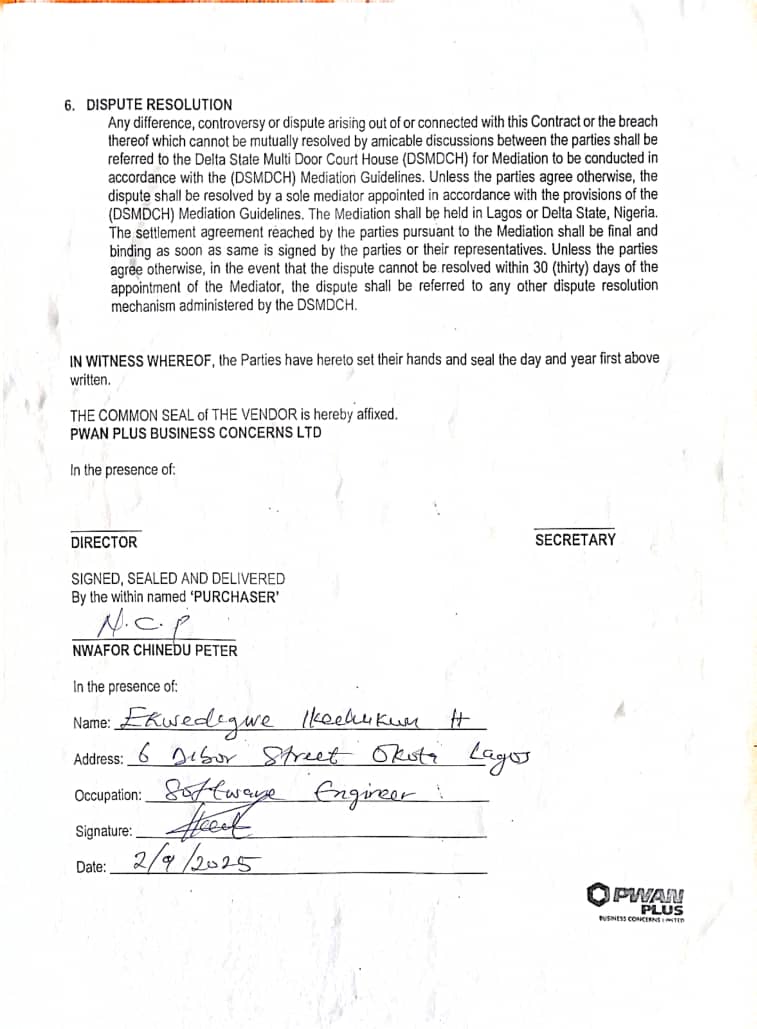 6. DISPUTE RESOLUTION
Any difference, controversy or dispute arising out of or connected with this Contract or the breach
thereof which cannot be mutually resolved by amicable discussions between the parties shall be
referred to the Delta State Multi Door Court House (DSMDCH) for Mediation to be conducted in
accordance with the (DSMDCH) Mediation Guidelines. Unless the parties agree otherwise, the
dispute shall be resolved by a sole mediator appointed in accordance with the provisions of the
(DSMDCH) Mediation Guidelines. The Mediation shall be held in Lagos or Delta State, Nigeria.
The settlement agreement reached by the parties pursuant to the Mediation shall be final and
binding as soon as same is signed by the parties or their representatives. Unless the parties
agree otherwise, in the event that the dispute cannot be resolved within 30 (thirty) days of the
appointment of the Mediator, the dispute shall be referred to any other dispute resolution
mechanism administered by the DSMDCH.
IN WITNESS WHEREOF, the Parties have hereto set their hands and seal the day and year first above
written.
THE COMMON SEAL of THE VENDOR is hereby affixed.
PWAN PLUS BUSINESS CONCERNS LTD
In the presence of:
DIRECTOR SECRETARY
SIGNED, SEALED AND DELIVERED
By the within named ‘PURCHASER’
N.C.P
NWAFOR CHINEDU PETER
In the presence of:
Name: Ekwedigwe Ikechukwu H
Address: 6 Street Okota Lagos
Occupation: Software Engineer
Signature:
Date: 2/9/2025
PWAN
PLUS
BUSINESS CONCERNS LIMITED